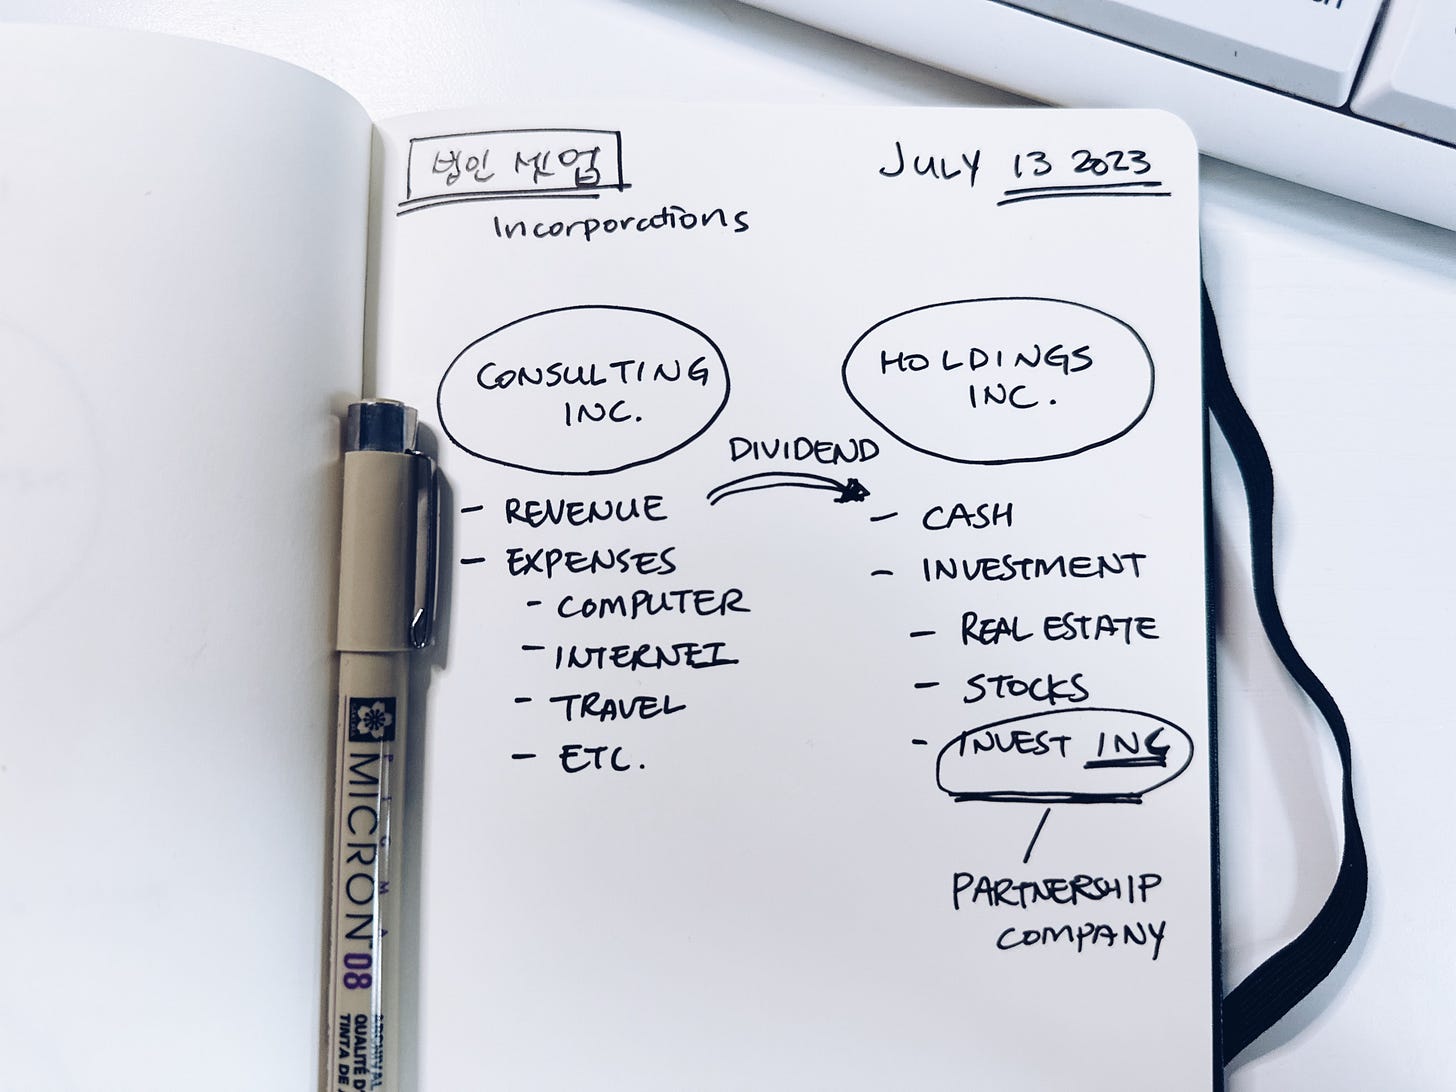 법인 셋업
JULY 13 2023
Incorporations
CONSULTING
INC.
HOLDINGS
INC.
DIVIDEND
- REVENUE
- EXPENSES
- COMPUTER
- INTERNET
- TRAVEL
- ETC.
- CASH
- INVESTMENT
- REAL ESTATE
- STOCKS
- INVEST INC
PARTNERSHIP
COMPANY
PIGMA
MICRON 08
QUALITÉ D'
TINTA DE